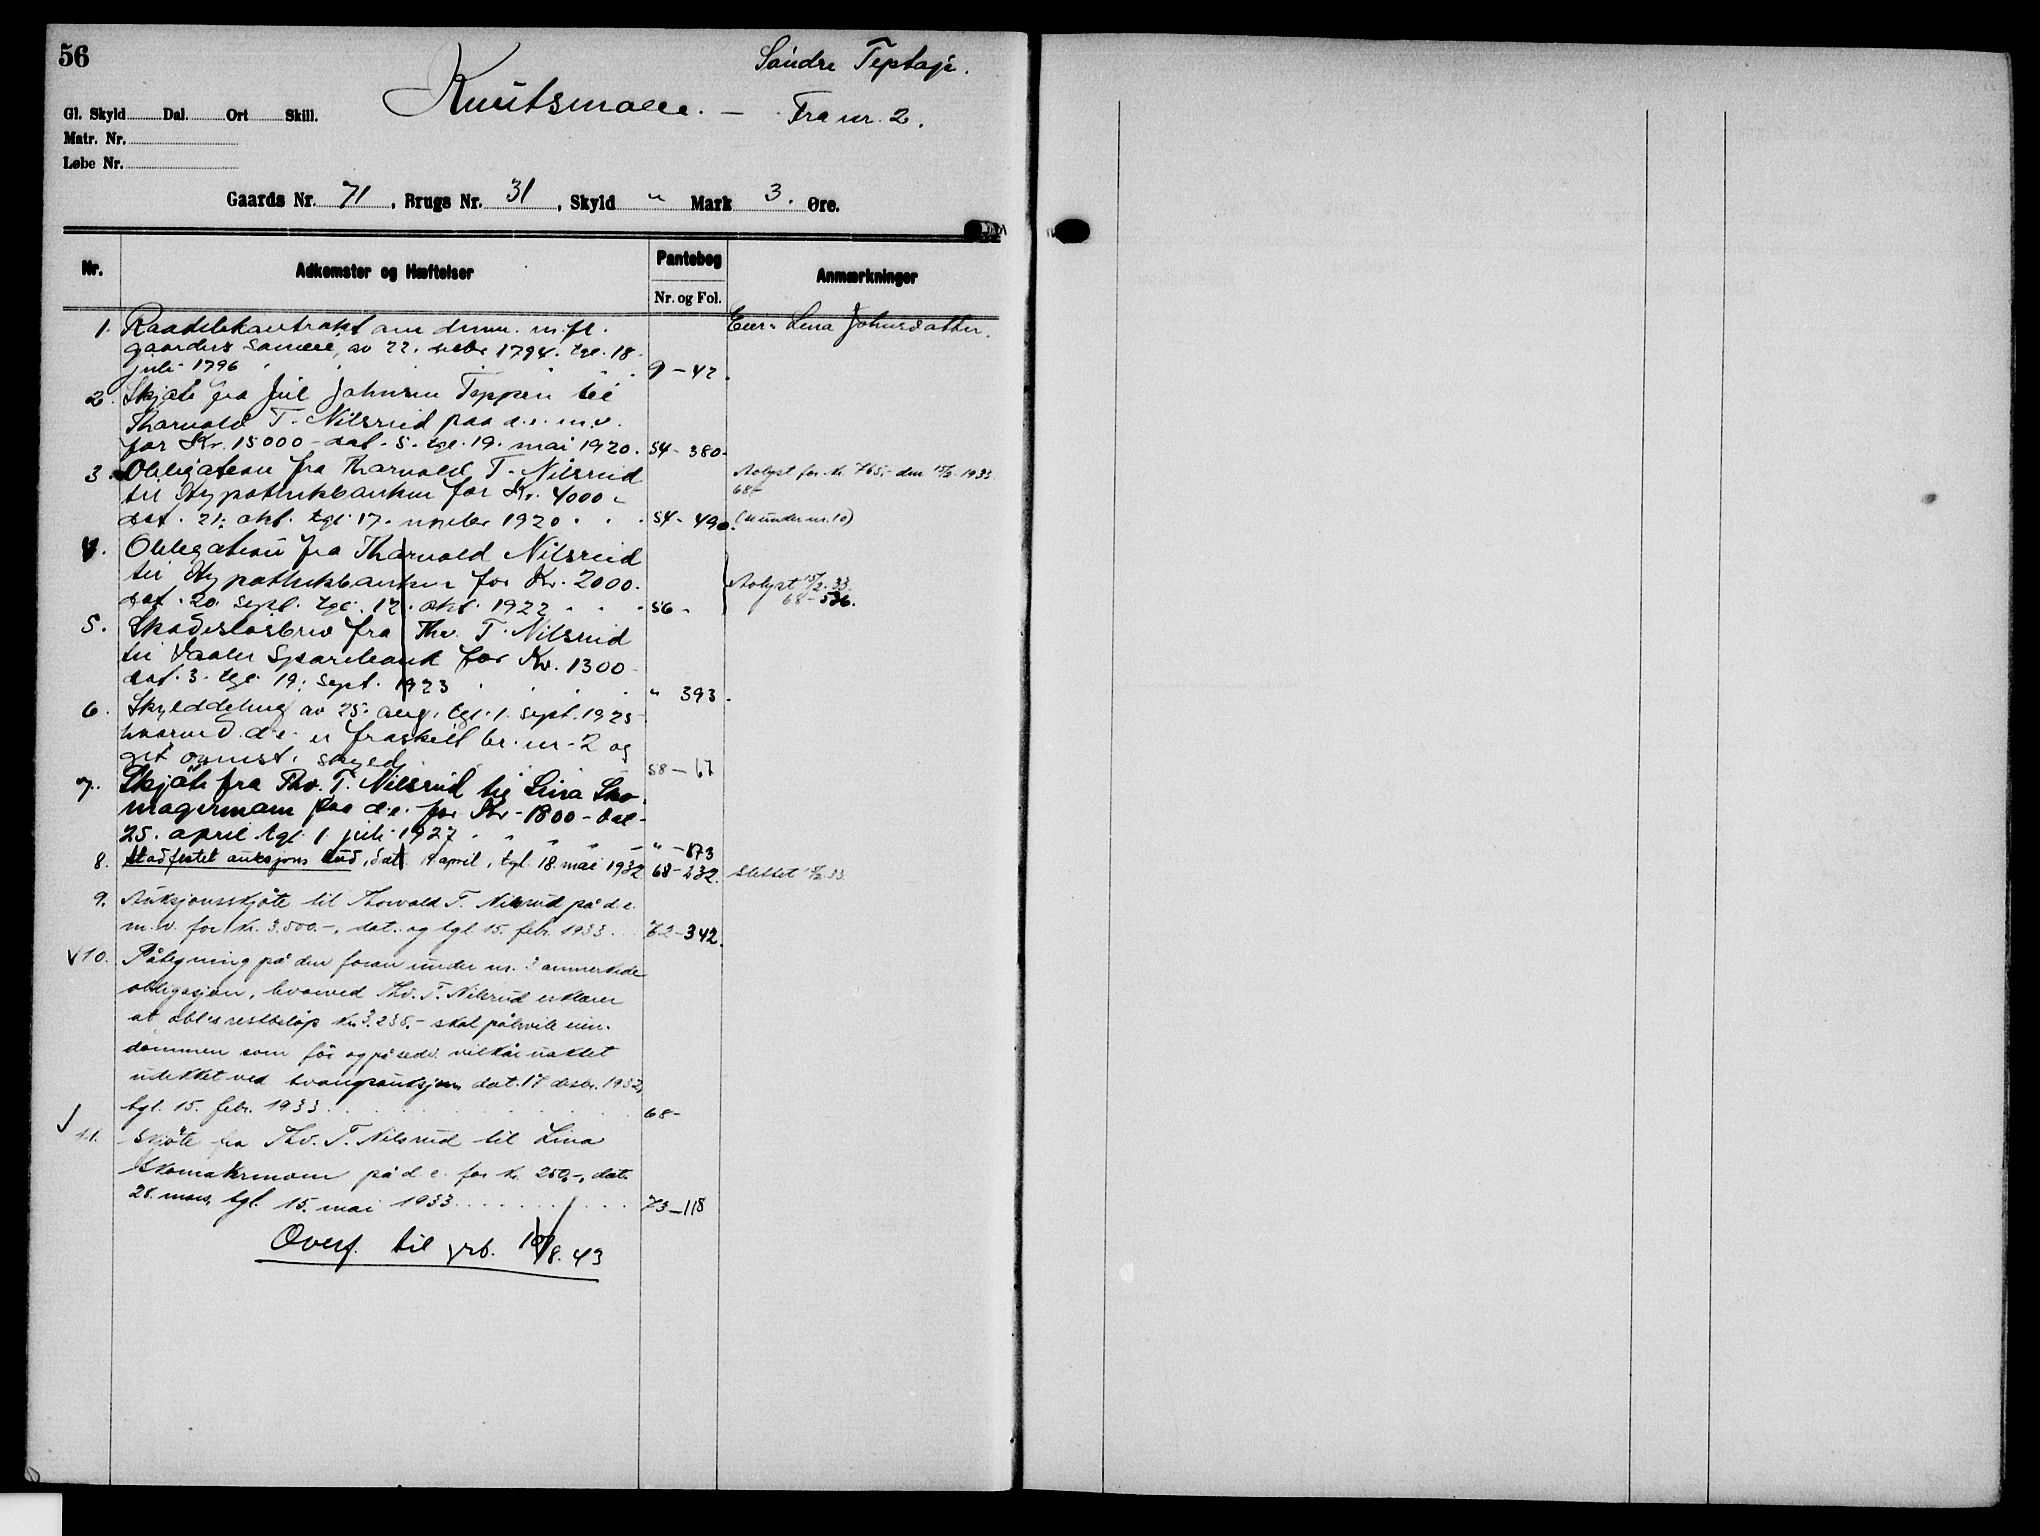 56
Søndre Teptasje.
Knutsmoen. — Fra nr. 2.
Gl. Skyld Dal. Ort Skill.
Matr. Nr.
Løbe Nr.
Gaards Nr. 71, Brugs Nr. 31, Skyld " Mark 3. Øre.
Nr. Adkomster og Hæftelser Pantebog Anmærkninger
Nr. og Fol.
1. m.fl. Eier: Lina Johnsdatter.
gaarders av 22. 1794. tgl. 18
juli 1796 9 – 42.
2. Skjøte fra Jul Johnsen Teppen til
Tharvald T. Nilsrud paa d.e. m.v.
for Kr. 15000 – dat. 5. tgl. 19. mai 1920. 54 – 380.
3. Obligation fra Tharvald T. Nilsrud Avlyst for kr. 765,- den 15/2. 1933
til Hypothekbanken for Kr. 4000 – 68-
dat. 21. okt. tgl. 17. novbr 1920 . . . 54 – 490. (se under nr. 10)
4. Obligation fra Tharvald Nilsrud
til Hypothekbanken for Kr. 2000. Avlyst 15/2. 33.
dat. 20. sept. tgl. 12. okt. 1922 . . . 56 – 68 – 526.
5. Skadesløsbrev fra Thv. T. Nilsrud
til Vaaler Sparebank for Kr. 1300
dat. 3. tgl. 19. sept. 1923 . . . . " 393.
6. Skylddeling av 25. aug. tgl. 1. sept. 1925
hvorved d.e. er fraskilt br. nr. 2 og
git skyld 58 – 67
7. Skjøte fra Thv. T. Nilsrud til Lina Sko-
magermoen paa d.e. for Kr. 1800 – dat.
25. april tgl. 1 juli 1927 " – 873
8. Stadfestet auksjons bud, dat. april, tgl. 18. mai 1932 68 – 232. slettet 15/2. 33.
9. Auksjonsskjøte til Thorvald T. Nilsrud på d.e.
m.v. for kr. 3.500.-, dat. og tgl. 15. febr. 1933 . . 72 – 342.
10. Påtegning på den foran under nr. 3 anmerkede
obligasjon, hvorved Thv. T. Nilsrud erklærer
at obl.s restbeløp kr. 3.235,- skal påhvile eien-
dommen som før og på sedv. vilkår uaktet
udekket ved tvangsauksjon, dat. 17 desbr. 1932,
tgl. 15. febr. 1933 . . . 68 -
11. Skjøte fra Thv. T. Nilsrud til Lina
Skomakermoen på d.e. for kr. 250,-, dat.
28. mars, tgl. 15. mai 1933 . . . 73 – 118
Overf. til grb. 8. 43